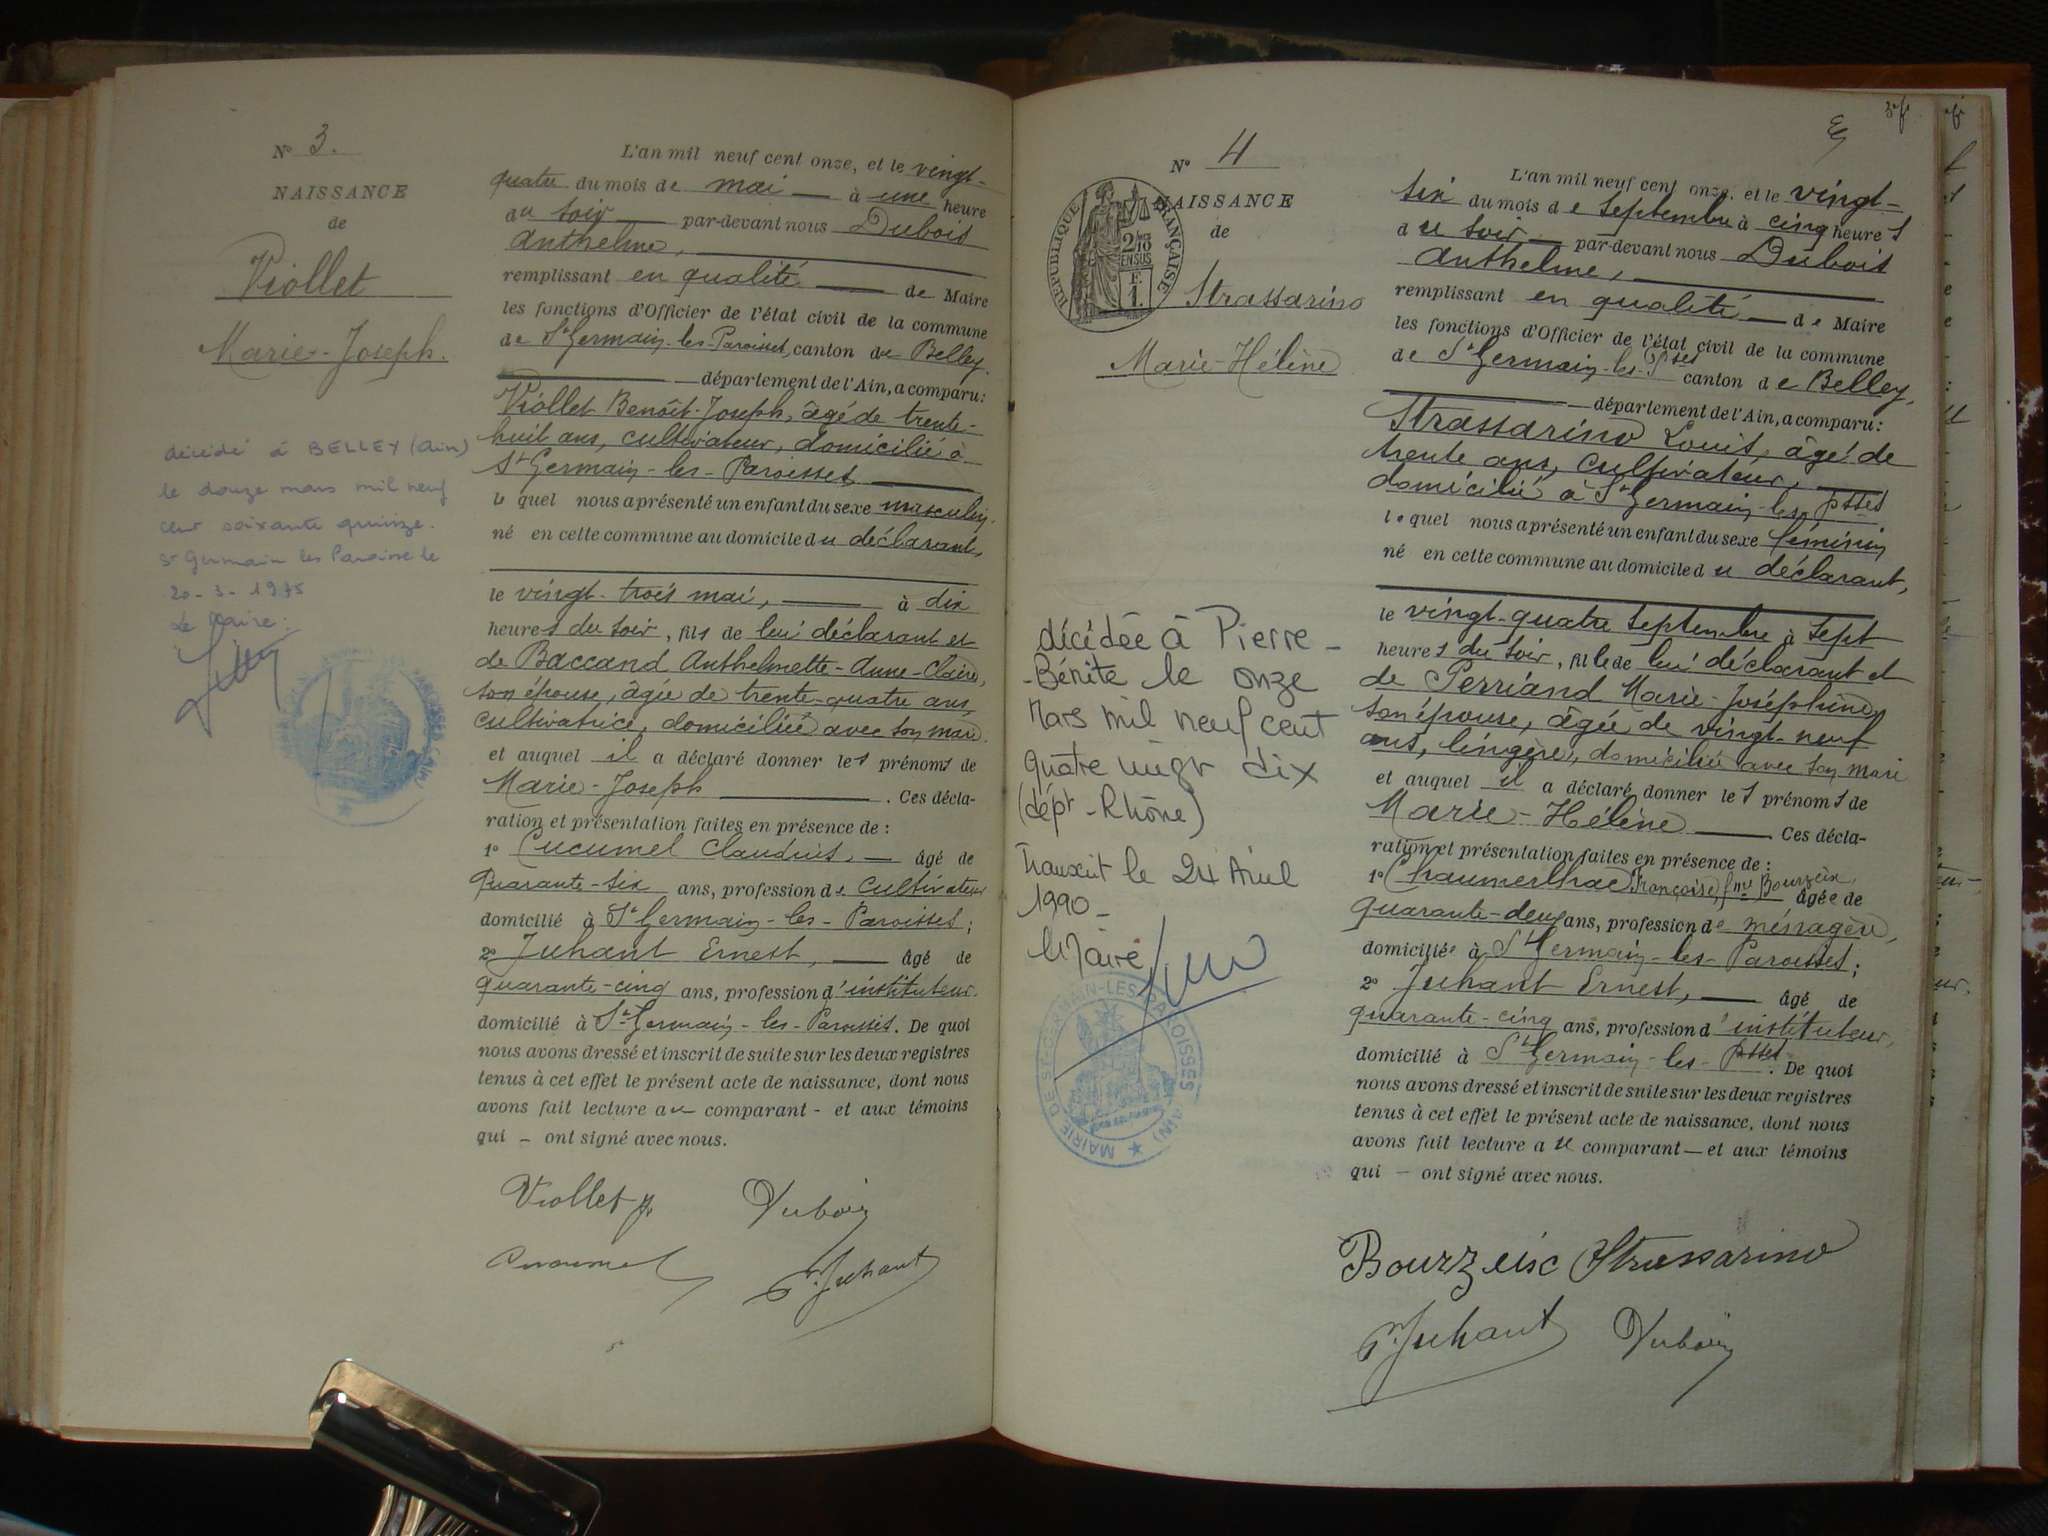 N° 3.
NAISSANCE
de
Viollet
Marie-Joseph.
décédé à BELLEY (Ain)
le douze mars mil neuf
cent soixante quinze.
St Germain les Paroisse le
20-3-1975
Le Maire:
L'an mil neuf cent onze, et le vingt-
quatre du mois de mai — à une heure
du soir — par-devant nous Dubois
Anthelme,
remplissant en qualité — de Maire
les fonctions d'Officier de l'état civil de la commune
de St Germain-les-Paroisses, canton de Belley.
— département de l'Ain, a comparu:
Viollet Benoît-Joseph, âgé de trente-
huit ans, cultivateur, domicilié à
St Germain-les-Paroisses
le quel nous a présenté un enfant du sexe masculin,
né en cette commune au domicile du déclarant,
le vingt-trois mai, — à dix
heures du soir, fils de lui déclarant et
de Baccand Anthelmette-Anne-Claire,
son épouse, âgée de trente-quatre ans,
cultivatrice, domiciliée avec son mari.
et auquel il a déclaré donner les prénoms de
Marie-Joseph — . Ces décla-
ration et présentation faites en présence de :
1° Cucumel Claudius, — âgé de
quarante-six ans, profession de cultivateur
domicilié à St Germain-les-Paroisses;
2° Juhant Ernest, — âgé de
quarante-cinq ans, profession d'instituteur.
domicilié à St Germain-les-Paroisses. De quoi
nous avons dressé et inscrit de suite sur les deux registres
tenus à cet effet le présent acte de naissance, dont nous
avons fait lecture au comparant - et aux témoins
qui - ont signé avec nous.
Viollet Dubois
Cucumel Juhant
N° 4
NAISSANCE
de
RÉPUBLIQUE FRANÇAISE
2/10
EN SUS
F.
1.
Strassarino
Marie-Hélène
décédée à Pierre-
-Bénite le onze
Mars mil neuf cent
quatre vingt dix
(dépt-Rhône)
Transcrit le 24 Avril
1990-
le Maire
MAIRIE DE ST-GERMAIN-LES-PAROISSES (AIN)
L'an mil neuf cent onze, et le vingt-
six du mois de septembre à cinq heures
du soir — par-devant nous Dubois
Anthelme,
remplissant en qualité — de Maire
les fonctions d'Officier de l'état civil de la commune
de St Germain-les-Psses canton de Belley,
— département de l'Ain, a comparu:
Strassarino Louis, âgé de
trente ans, cultivateur,
domicilié à St Germain-les-psses
le quel nous a présenté un enfant du sexe féminin
né en cette commune au domicile du déclarant,
le vingt-quatre septembre à sept
heures du soir, fille de lui déclarant et
de Perriand Marie-Joséphine,
son épouse, âgée de vingt-neuf
ans, lingère, domiciliée avec son mari
et auquel il a déclaré donner les prénoms de
Marie-Hélène — Ces décla-
ration et présentation faites en présence de :
1° Françoise, fme Bourzeix âgée de
quarante-deux ans, profession de ménagère,
domiciliée à St Germain-les-Paroisses;
2° Juhant Ernest, — âgé de
quarante-cinq ans, profession d'instituteur,
domicilié à St Germain-les-psses. De quoi
nous avons dressé et inscrit de suite sur les deux registres
tenus à cet effet le présent acte de naissance, dont nous
avons fait lecture au comparant — et aux témoins
qui — ont signé avec nous.
Bourzeix Strassarino
Juhant Dubois